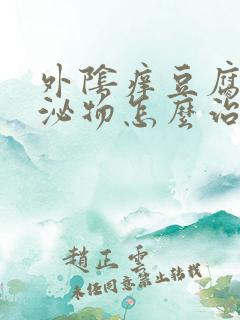 外陰痒豆腐
泌物怎麼治
趙正雲
未经同意禁止转载